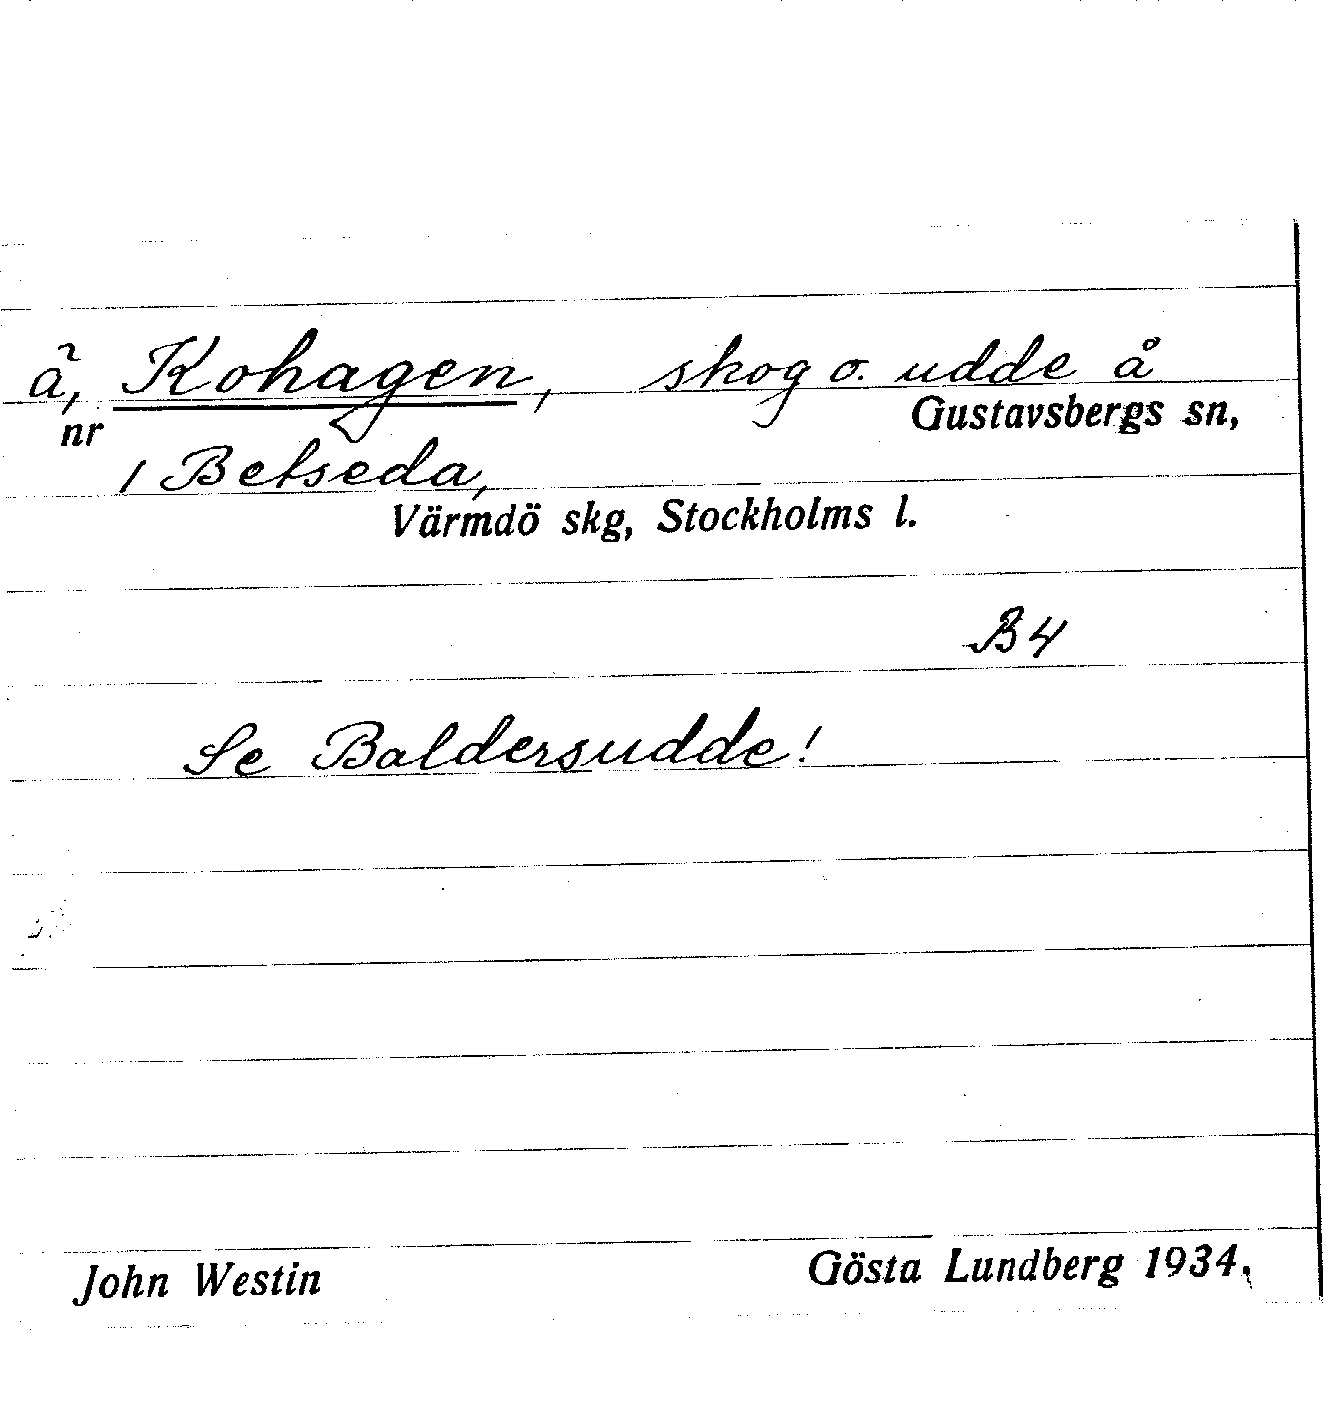 ã, Kohagen, skog o. udde å
nr Gustavsbergs sn,
1 Betseda,
Värmdö skg, Stockholms l.
B4
Se Baldersudde!
John Westin Gösta Lundberg 1934.